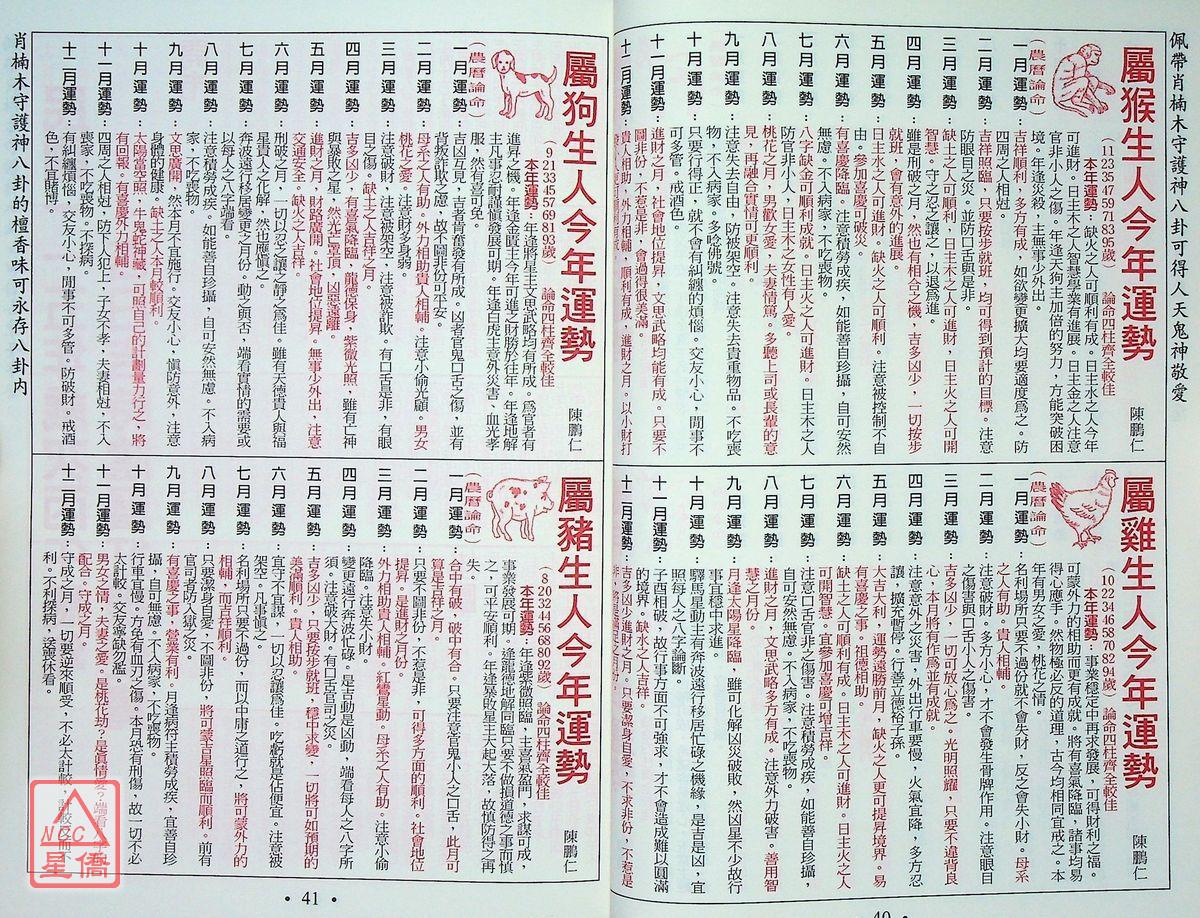 佩帶肖楠木守護神八卦可得人天鬼神敬愛
屬猴生人今年運勢
(11 23 35 47 59 71 83 95歲) 論命四柱齊全較佳
陳鵬仁
(農曆論命)
本年運勢：缺火之人可順利有成。日主水之人今年
可進財。日主木之人智慧學業有進展。日主金之人注意
官非小人之傷。年逢天狗主加倍的努力，方能突破困
境。年逢災殺，主無事少外出。
一月運勢：吉祥順利，多方有成，如欲變更擴大均要適度為之。防
四周之人相尅。
二月運勢：吉祥照臨，只要按步就班，均可得到預計的目標。注意
防眼目之災。並防口舌與是非
三月運勢：缺土之人可順利，日主水之人可進財，日主火之人可開
智慧。守之忍之讓之，以退為進。
四月運勢：雖是刑破之月，然也有相合之機，吉多凶少，一切按步
就班，會有意外的進展。
五月運勢：日主水之人可進財。缺火之人可順利。注意被控制不自
由。參加喜慶可破災
六月運勢：有喜慶降臨。注意積勞成疾，如能善自珍攝，自可安然
無慮。不入病家，不吃喪物。
七月運勢：八字缺金可順利成就。日主火之人可進財。日主木之人
防官非小人，日主木之女性有人愛。
八月運勢：桃花之月，男歡女愛，夫妻情篤。多聽上司或長輩的意
見，再融合實情可更順利。
九月運勢：注意失去自由，防被架空。注意失去貴重物品。不吃喪
物，不入病家。多唸佛號。
十月運勢：只要行得正，就不會有糾纏的煩惱。交友小心，閒事不
可多管。戒酒色。
十一月運勢：進財之月，社會地位提昇，文思武略均能有成。只要不
圖非份，不惹是非，會過得很美滿。
十二月運勢：貴人相助，外力相輔，順利有成，進財之月。以小財打
屬雞生人今年運勢
(10 22 34 46 58 70 82 94歲) 論命四柱齊全較佳
陳鵬仁
(農曆論命)
本年運勢：事業穩定中再求發展，可得財利之福。
可蒙外力的相助而更有成就。將有喜氣降臨，諸事均易
得心應手。然物極必反的道理，古今均相同宜戒之。本
年有男女之愛，桃花之情。
一月運勢：名利場所只要不過份就不會失財，反之會失小財。母系
之人有助。貴人相輔。
二月運勢：注意破財。多方小心，才不會發生骨牌作用。注意眼目
之傷害與口舌小人之傷害
三月運勢：吉多凶少，一切可放心為之。光明照耀，只要不違背良
心，本月將有作為並有成就。
四月運勢：注意意外之災害，外出行車要慢，火氣宜降，多方忍
讓，擴充暫停。行善立德裕子孫。
五月運勢：大吉大利，運勢遠勝前月，缺火之人更可提昇境界。易
有喜慶之事。祖德相助
六月運勢：缺土之人可順利有成。日主木之人可進財。日主火之人
可開智慧。宜參加喜慶可增吉祥。
七月運勢：注意口舌官非之傷害。注意積勞成疾，如能善自珍攝，
自可安然無慮。不入病家，不吃喪物。
八月運勢：進財之月，文思武略多方有成。注意外力破害。善用智
慧之月份
九月運勢：月逢太陽星降臨，雖可化解凶災破敗，然凶星不少故行
事宜穩中求進。
十月運勢：驛馬星動主有奔波遠行移居忙碌之機緣，是吉是凶，宜
照每人之八字論斷。
十一月運勢：子酉相破，故行事方面不可強求，才不會造成難以圓滿
的境界。缺水之人吉祥。
十二月運勢：吉多凶少，進財之月。只要潔身自愛，不求非份，不惹是
• 40 •
屬狗生人今年運勢
(9 21 33 45 57 69 81 93歲) 論命四柱齊全較佳
陳鵬仁
(農曆論命)
本年運勢：年逢將星主文思武略均有所成。為官者有
進昇之機。年逢金匱主今年可進之財勝於往年。年逢地解
主凡事忍耐謹慎發展可期。年逢白虎主意外災害、血光孝
服，然有喜可免。
一月運勢：吉凶互見，吉者奮發有所成。凶者官鬼口舌之傷，並有
背叛詐欺之慮，故不圖非份可平安。
二月運勢：母系之人有助。外力相助貴人相輔。注意小偷光顧。男女
桃花之愛。注意財多身弱
三月運勢：注意破財，注意被架空，注意被詐欺。有口舌是非，有眼
目之傷。缺土之人吉祥之月。
四月運勢：吉多凶少，有喜氣降臨，龍德保身，紫微光照，雖有亡神
與暴敗之星，然光芒罩頂，凶惡遠離。
五月運勢：進財之月，財路廣開。社會地位提昇。無事少外出，注意
交通安全。缺火之人成功之月。
六月運勢：刑破之月，一切以忍之讓之靜之為佳。雖有天德貴人與福
星貴人之化解，然也應慎之。
七月運勢：奔波遠行移居變更之月份。動之與否，端看實情的需要或
以每人之八字端看。
八月運勢：注意積勞成疾，如能善自珍攝，自可安然無慮。不入病
家，不吃喪物。
九月運勢：文思廣開，然本月不宜施行。交友小心，慎防意外，注意
身體的健康。缺土之人本月較順利。
十月運勢：太陽當空照，牛鬼蛇神藏，可照自己的計劃量力行之，將
有回報。有喜慶外力相輔。
十一月運勢：四周之人相尅，防下人犯上，子女不孝，夫妻相尅，不入
喪家，不吃喪物。不探病。
十二月運勢：有糾纏煩惱，交友小心，閒事不可多管。防破財。戒酒
色，不宜賭博。
屬豬生人今年運勢
(8 20 32 44 56 68 80 92歲) 論命四柱齊全較佳
陳鵬仁
(農曆論命)
本年運勢：年逢紫微照臨，主喜氣盈門，求謀可成，
事業發展可期。逢龍德地解同臨只要不做損道德之事而慎
之，可平安順利。年逢暴敗星主大起大落，故慎防得之再
失。
一月運勢：合中有破，破中有合。只要注意官鬼小人之口舌，此月可
算是吉祥之月。
二月運勢：只要不圖非份，不惹是非，可得多方面的順利。社會地位
提昇。是進財之月份
三月運勢：外力相助貴人相輔。紅鸞星動。母系之人有助。注意小偷
降臨。注意失小財
四月運勢：變更遠行奔波忙碌，是吉動是凶動，端看每人之八字所
須。注意破大財。有口舌官司之災。
五月運勢：吉多凶少，只要按步就班，穩中求變，一切將可如預期的
美滿順利。貴人相助
六月運勢：宜守不宜謀，一切以忍讓為佳。吃虧就是佔便宜。注意被
架空。凡事慎之
七月運勢：名利場所只要不過份，而以中庸之道行之，將可蒙外力的
相輔，而吉祥順利。
八月運勢：只要潔身自愛，不圖非份，將可蒙吉星照臨而順利。前有
官司者防入獄之災。
九月運勢：有喜慶之事，營業有利。月逢病符主積勞成疾，宜善自珍
攝，自可無慮。不入病家，不吃喪物。
十月運勢：行車宜慢。方免有血刃之傷。本月恐有刑傷，故一切不必
太計較。交友寧缺勿濫。
十一月運勢：男女之情，夫妻之愛。是桃花劫？是真情愛？端看
配合。守成之月。
十二月運勢：守成之月，一切要逆來順受，不必太計較，
利。不利探病，送喪休看。
肖楠木守護神八卦的檀香味可永存八卦內
• 41 •
NCC
星僑